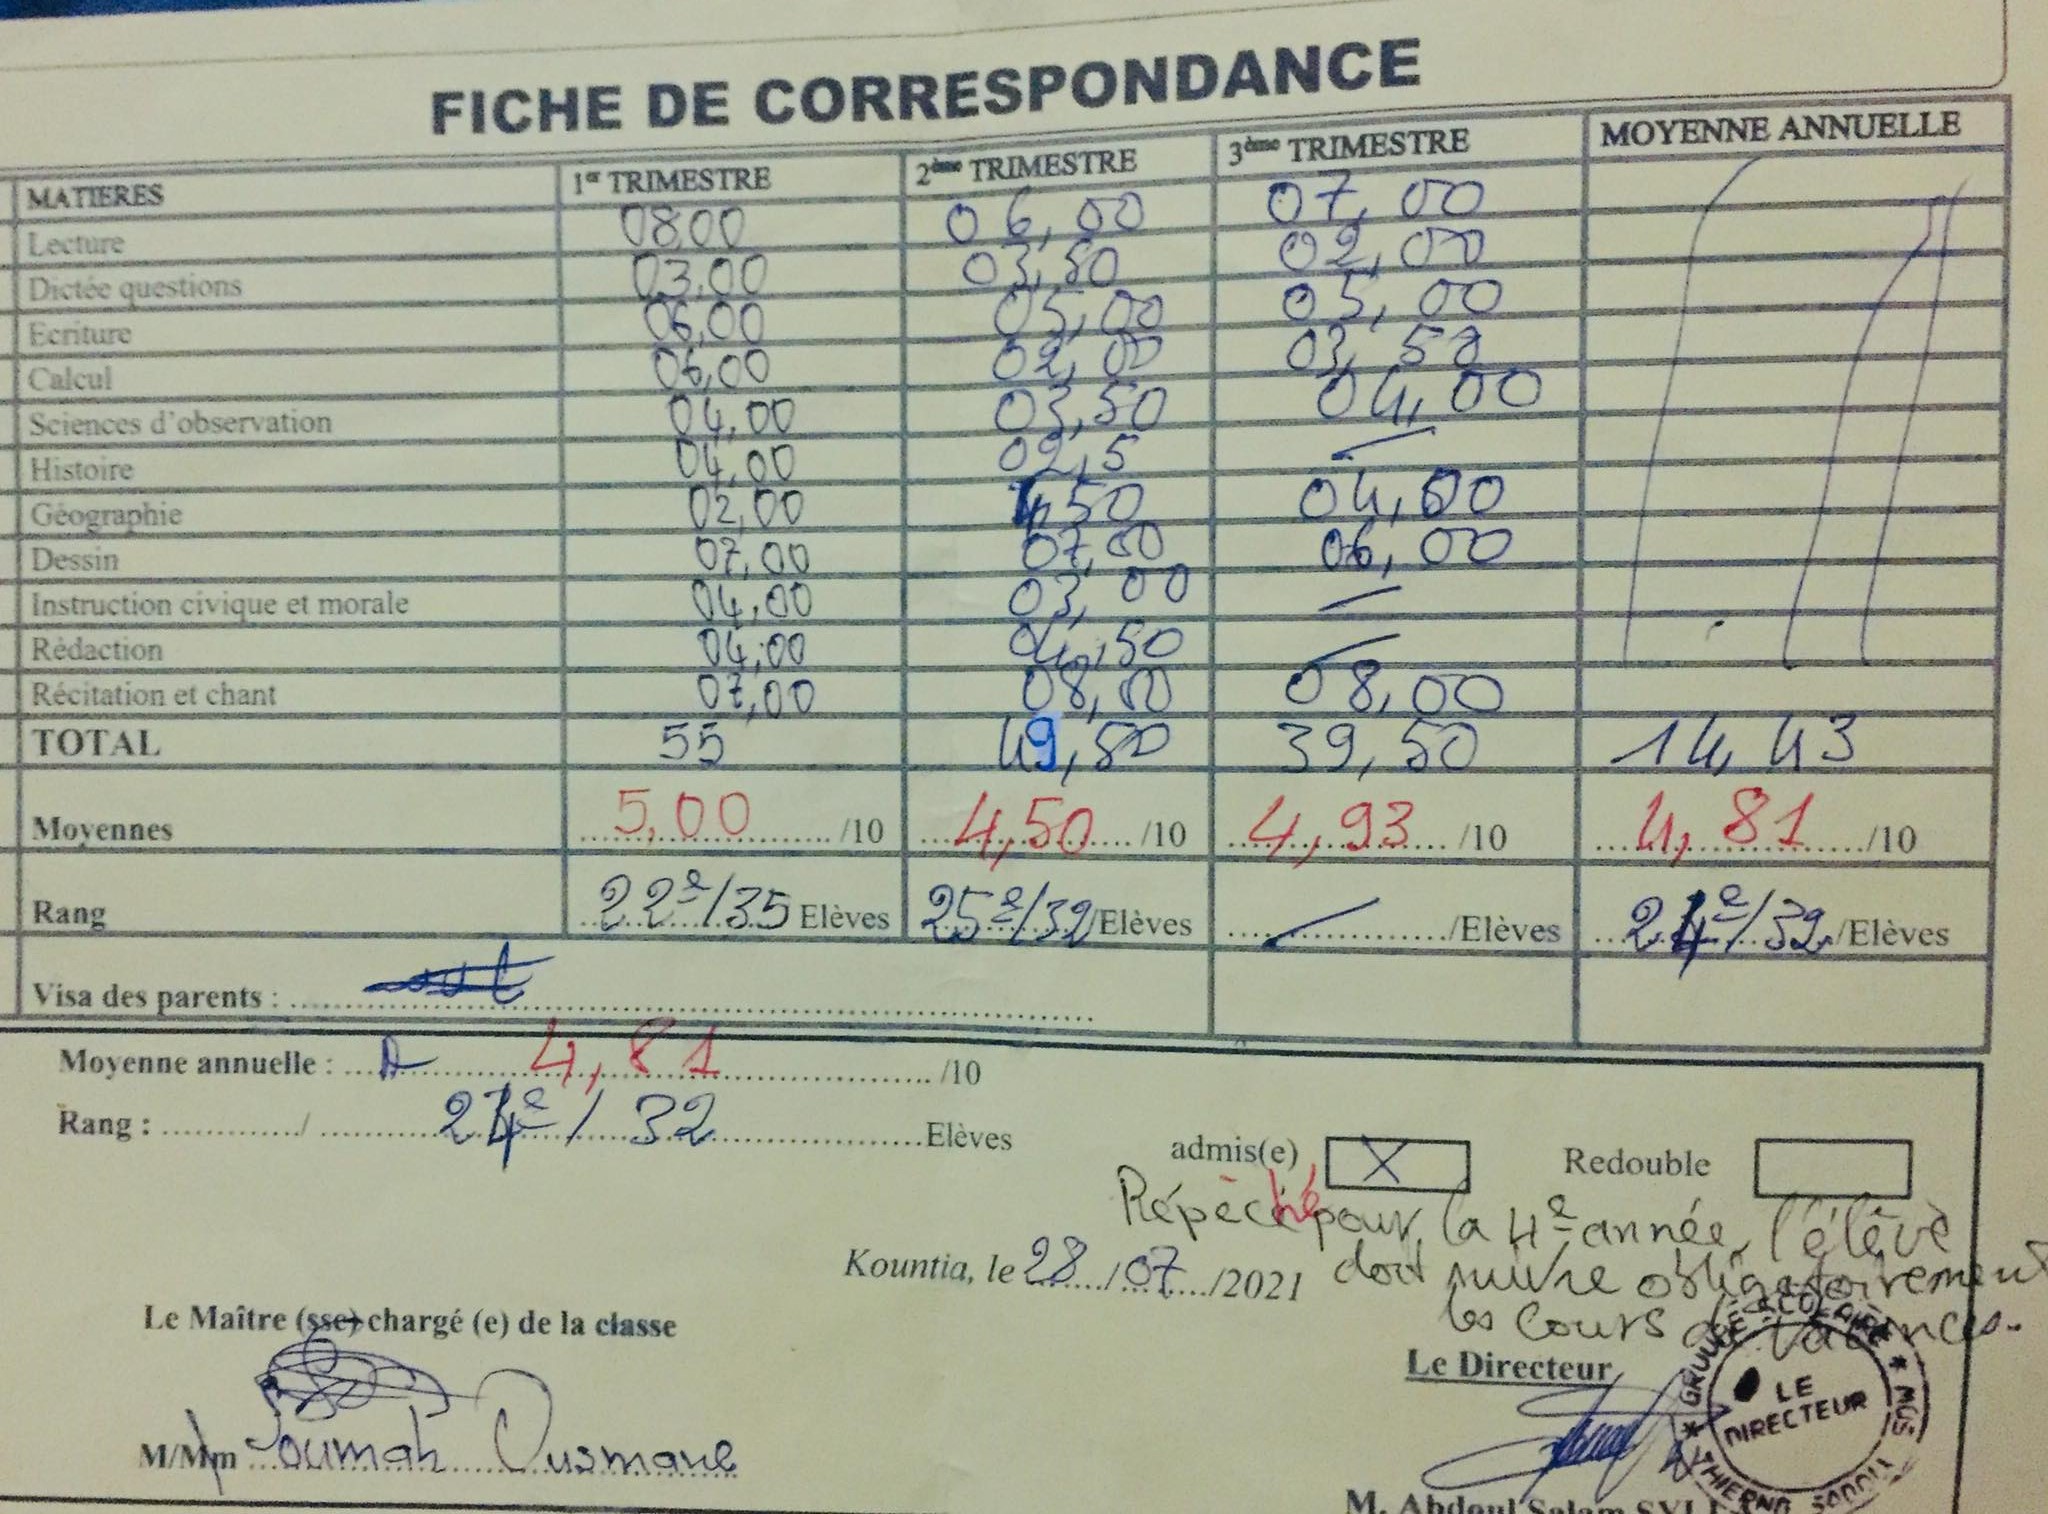 FICHE DE CORRESPONDANCE
MATIERES 1er TRIMESTRE 2ème TRIMESTRE 3ème TRIMESTRE MOYENNE ANNUELLE
Lecture 08,00 06,00 07,00
Dictée questions 03,00 03,50 02,00
Ecriture 06,00 05,00 05,00
Calcul 06,00 02,00 03,50
Sciences d'observation 04,00 03,50 04,00
Histoire 04,00 02,5
Géographie 02,00 4,50 04,00
Dessin 07,00 07,00 06,00
Instruction civique et morale 04,00 03,00
Rédaction 04,00 04,50
Récitation et chant 07,00 08,00 08,00
TOTAL 55 49,50 39,50 14,43
Moyennes 5,00 /10 4,50 /10 4,93 /10 4,81 /10
Rang 22e/35 Elèves 25e/32/Elèves /Elèves 24e/32/Elèves
Visa des parents :
Moyenne annuelle : 4,81 /10
Rang : / 24e/32 Elèves
admis(e) X Redouble
Répéché pour la 4e année, l'élève
doit suivre obligatoirement
les cours de vacances.
Kountia, le 28/07/2021
Le Maître (sse) chargé (e) de la classe
Le Directeur
M/Mm Soumah Ousmane
GROUPE SCOLAIRE * MGS * THIERNO SADOU *
LE DIRECTEUR
M. Abdoul Salam SYLLA